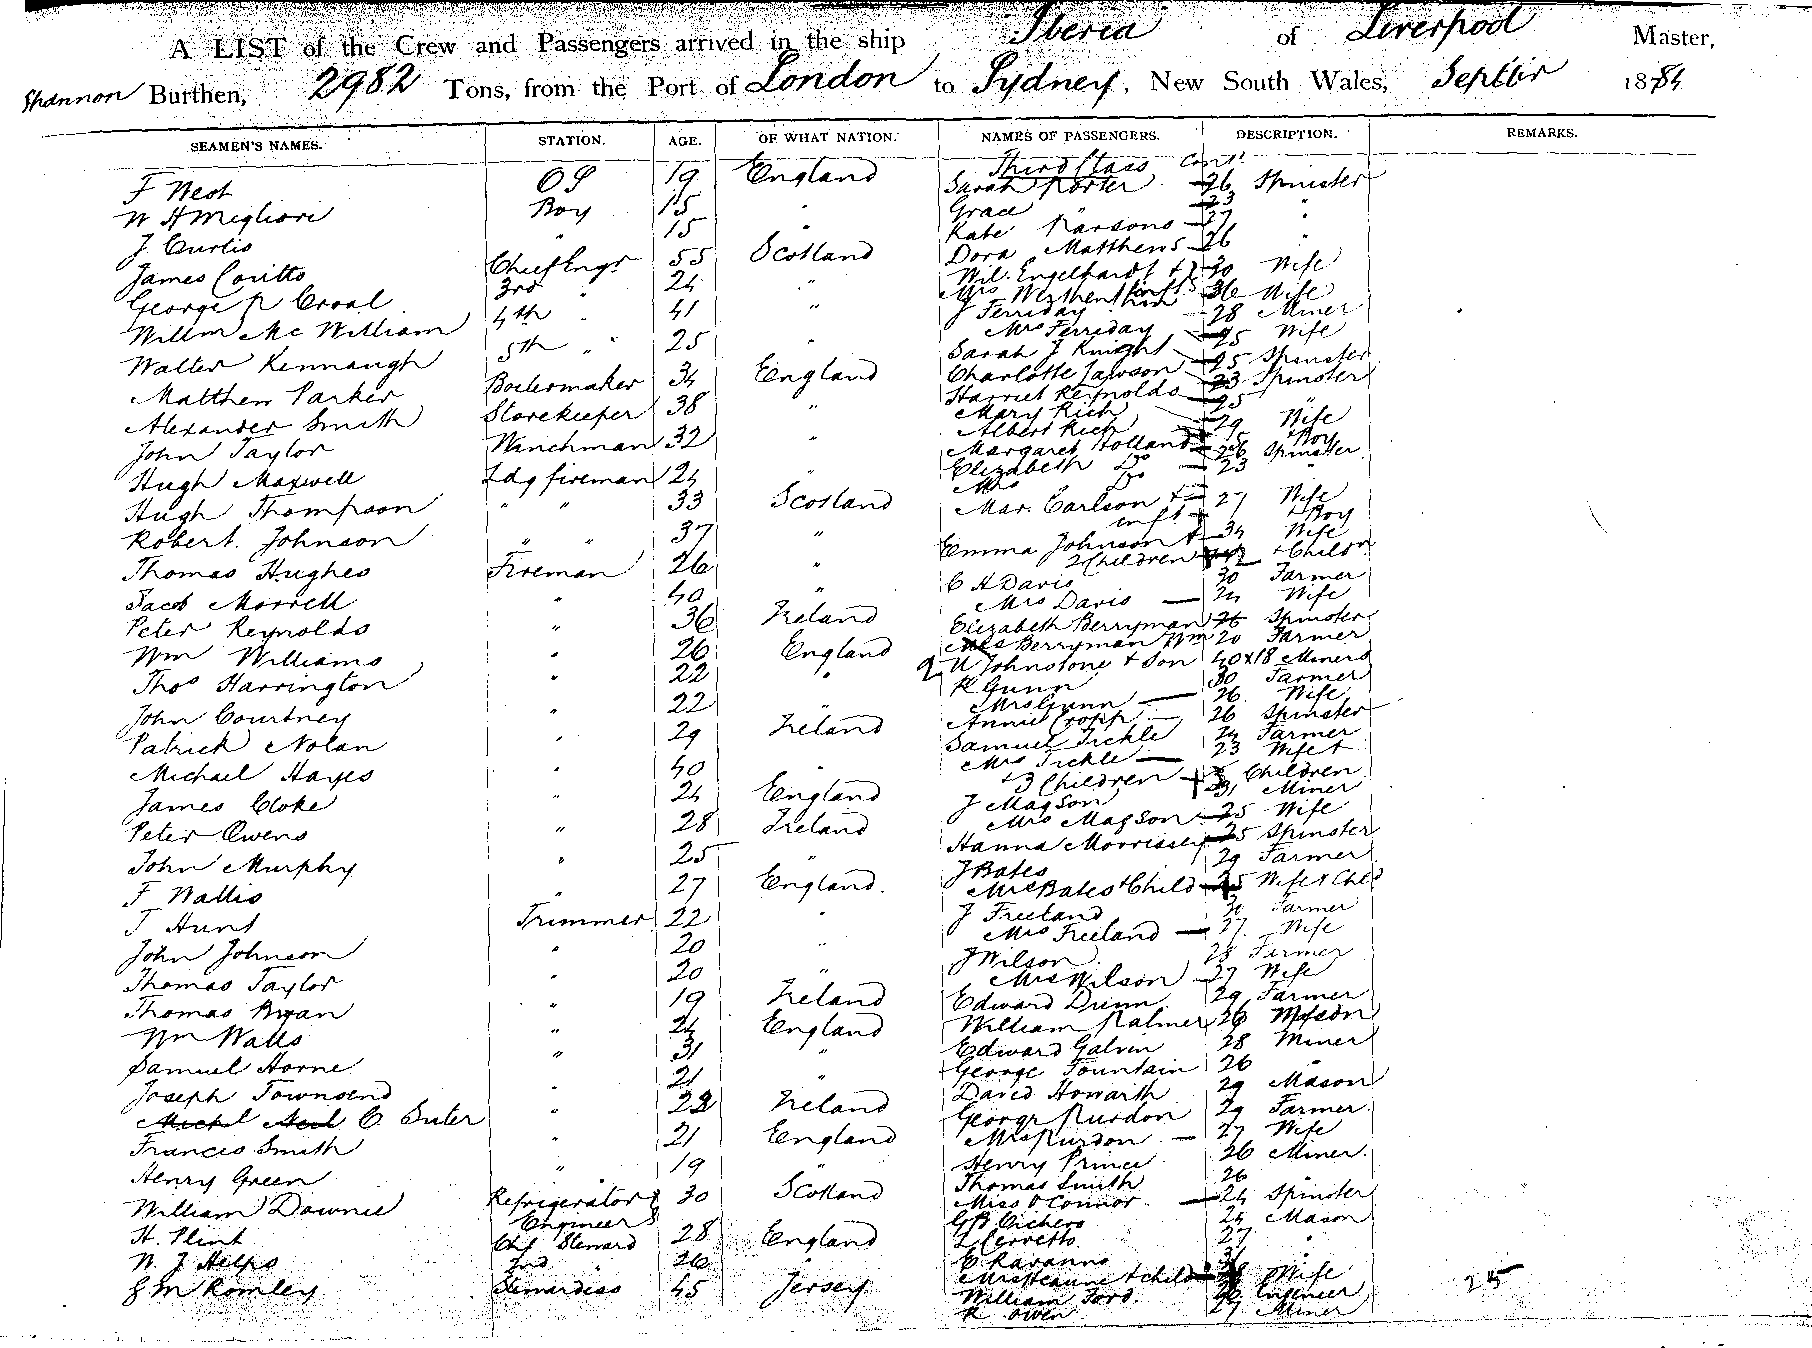 A LIST of the Crew and Passengers arrived in the ship Iberia of Liverpool Master,
Shannon Burthen, 2982 Tons, from the Port of London to Sydney, New South Wales, Septbr 1884
SEAMEN'S NAMES. STATION. AGE. OF WHAT NATION. NAMES OF PASSENGERS. DESCRIPTION. REMARKS.
Third Class Cont.
F West OS 19 England Sarah Porter 26 Spinster
W H Migliori Boy 15 " Grace " 23 "
J. Curtis " 15 " Kate Parsons 27 "
Dora Matthews 26 "
James Coutts Chief Engr 55 Scotland Wil. Engelhardt + 30 Wife
George R Croal 3rd " 24 " Mrs infts 36 Wife
Willm Mc William 4th " 41 " J Ferriday 28 Miner
Mrs Ferriday 25 Wife
Walter Kennaugh 5th " " 25 " Sarah J Knight 25 Spinster
Matthew Parker Boilermaker 34 England Charlotte Lawson 23 Spinster
Harriet Reynolds 25 "
Alexander Smith Storekeeper 38 " Mary Rich 29 Wife
Albert Rich Boy
John Taylor Winchman 32 " Margaret Holland 26 Spinster
Elizabeth Do 23 "
Hugh Maxwell Ldg fireman 24 " Mrs Do
Hugh Thompson " " 33 Scotland Mar. Carlson + 27 Wife
inft + Boy
Robert. Johnson " " 37 " Emma Johnson + 34 Wife
2 Children + Childn
Thomas Hughes Fireman 26 " C H Davis 30 Farmer
Jacob Morrell " 40 " Mrs Davis 24 Wife
Peter Reynolds " 36 Ireland Elizabeth Berryman 26 Spinster
Berryman Wm 20 Farmer
Wm Williams " 26 England 2 W Johnstone + Son 40 x 18 Miners
Thos Harrington " 22 " R Gunn 30 Farmer
Mrs Gunn 26 Wife
John Courtney " 22 " Annie Cropp 26 Spinster
Patrick Nolan " 29 Ireland Samuel Tickle 24 Farmer
Mrs Tickle 23 Wife +
Michael Hayes " 40 " + 3 Children Children
James Cloke " 24 England J Magson 31 Miner
Peter Owens " 28 Ireland Mrs Magson 25 Wife
Hanna Morrissey 25 Spinster
John Murphy " 25 " J Bates 29 Farmer
F Wallis " 27 England. Mrs Bates + Child 25 Wife + Chld
J Hunt Trimmer 22 " J Freeland 30 Farmer
Mrs Freeland 27 Wife
John Johnson " 20 " J Wilson 28 Farmer
Thomas Taylor " 20 " Mrs Wilson 27 Wife
Thomas Ryan " 19 Ireland Edward Drinn 29 Farmer
Wm Walls " 24 England William Palmer 26 Mason
Samuel Horne " 31 " Edward Galvin 28 Miner
George Fountain 26 "
Joseph Townsend " 21 " David Howarth 29 Mason
Michl Neil C. Suter " 22 Ireland George Purdon 29 Farmer
Francis Smith " 21 England Mrs Purdon 27 Wife
Henry Green " 19 " Henry Prince 26 Miner.
Thomas Smith 26 "
William Downie Refrigerator Engineer 30 Scotland Miss O'Connor 24 Spinster
G B Cichero 24 Mason
H. Flint Chf Steward 28 England L Cervetto 27 "
W. J Helps 2nd " 26 " E Ravanno
Mrs Jeanne + child Wife
E M Romley Stewardess 45 Jersey William Ford. Engineer
R Owen 27 Miner
25